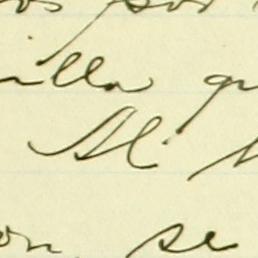 os por
illa qu
Al
on, se